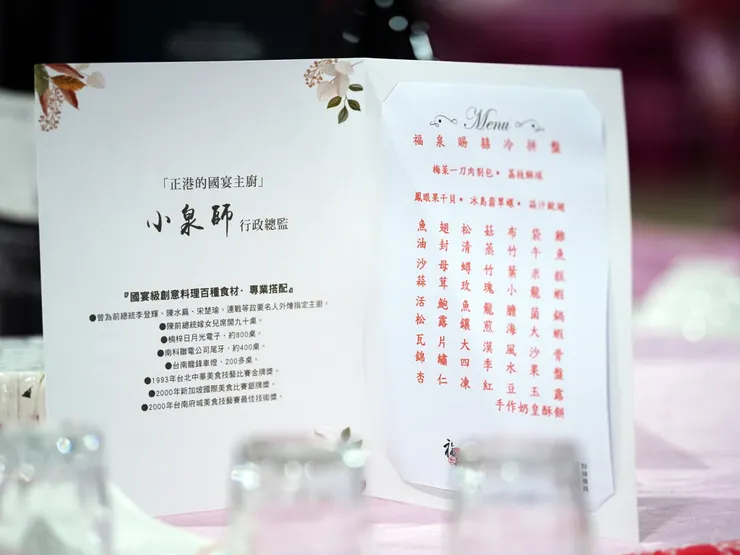 「正港的國宴主廚」
小泉師 行政總監
『國宴級創意料理百種食材．專業搭配』
●曾為前總統李登輝、陳水扁、宋楚瑜、連戰等政要名人外燴指定主廚。
●陳前總統嫁女兒席開九十桌。
●楠梓日月光電子，約800桌。
●南科聯電公司尾牙，約400桌。
●台南龍鋒車燈，200多桌。
●1993年台北中華美食技藝比賽金牌獎。
●2000年新加坡國際美食比賽銀牌獎。
●2000年台南府城美食技藝賽最佳技術獎。
Menu
福泉賜囍冷拼盤
梅菜一刀肉割包。荔枝酥球
鳳眼果干貝。冰島翡翠螺。茄汁
魚翅松菇布袋雞
油封清蒸竹午魚
沙母蟳竹葉米糕
蒜茸玫瑰小龍蝦
活鮑魚龍膽菌鍋
松露鑲煎海大蝦
瓦片大漢風沙骨
錦繡四季水果盤
杏仁凍紅豆玉露
手作奶皇酥餅
福